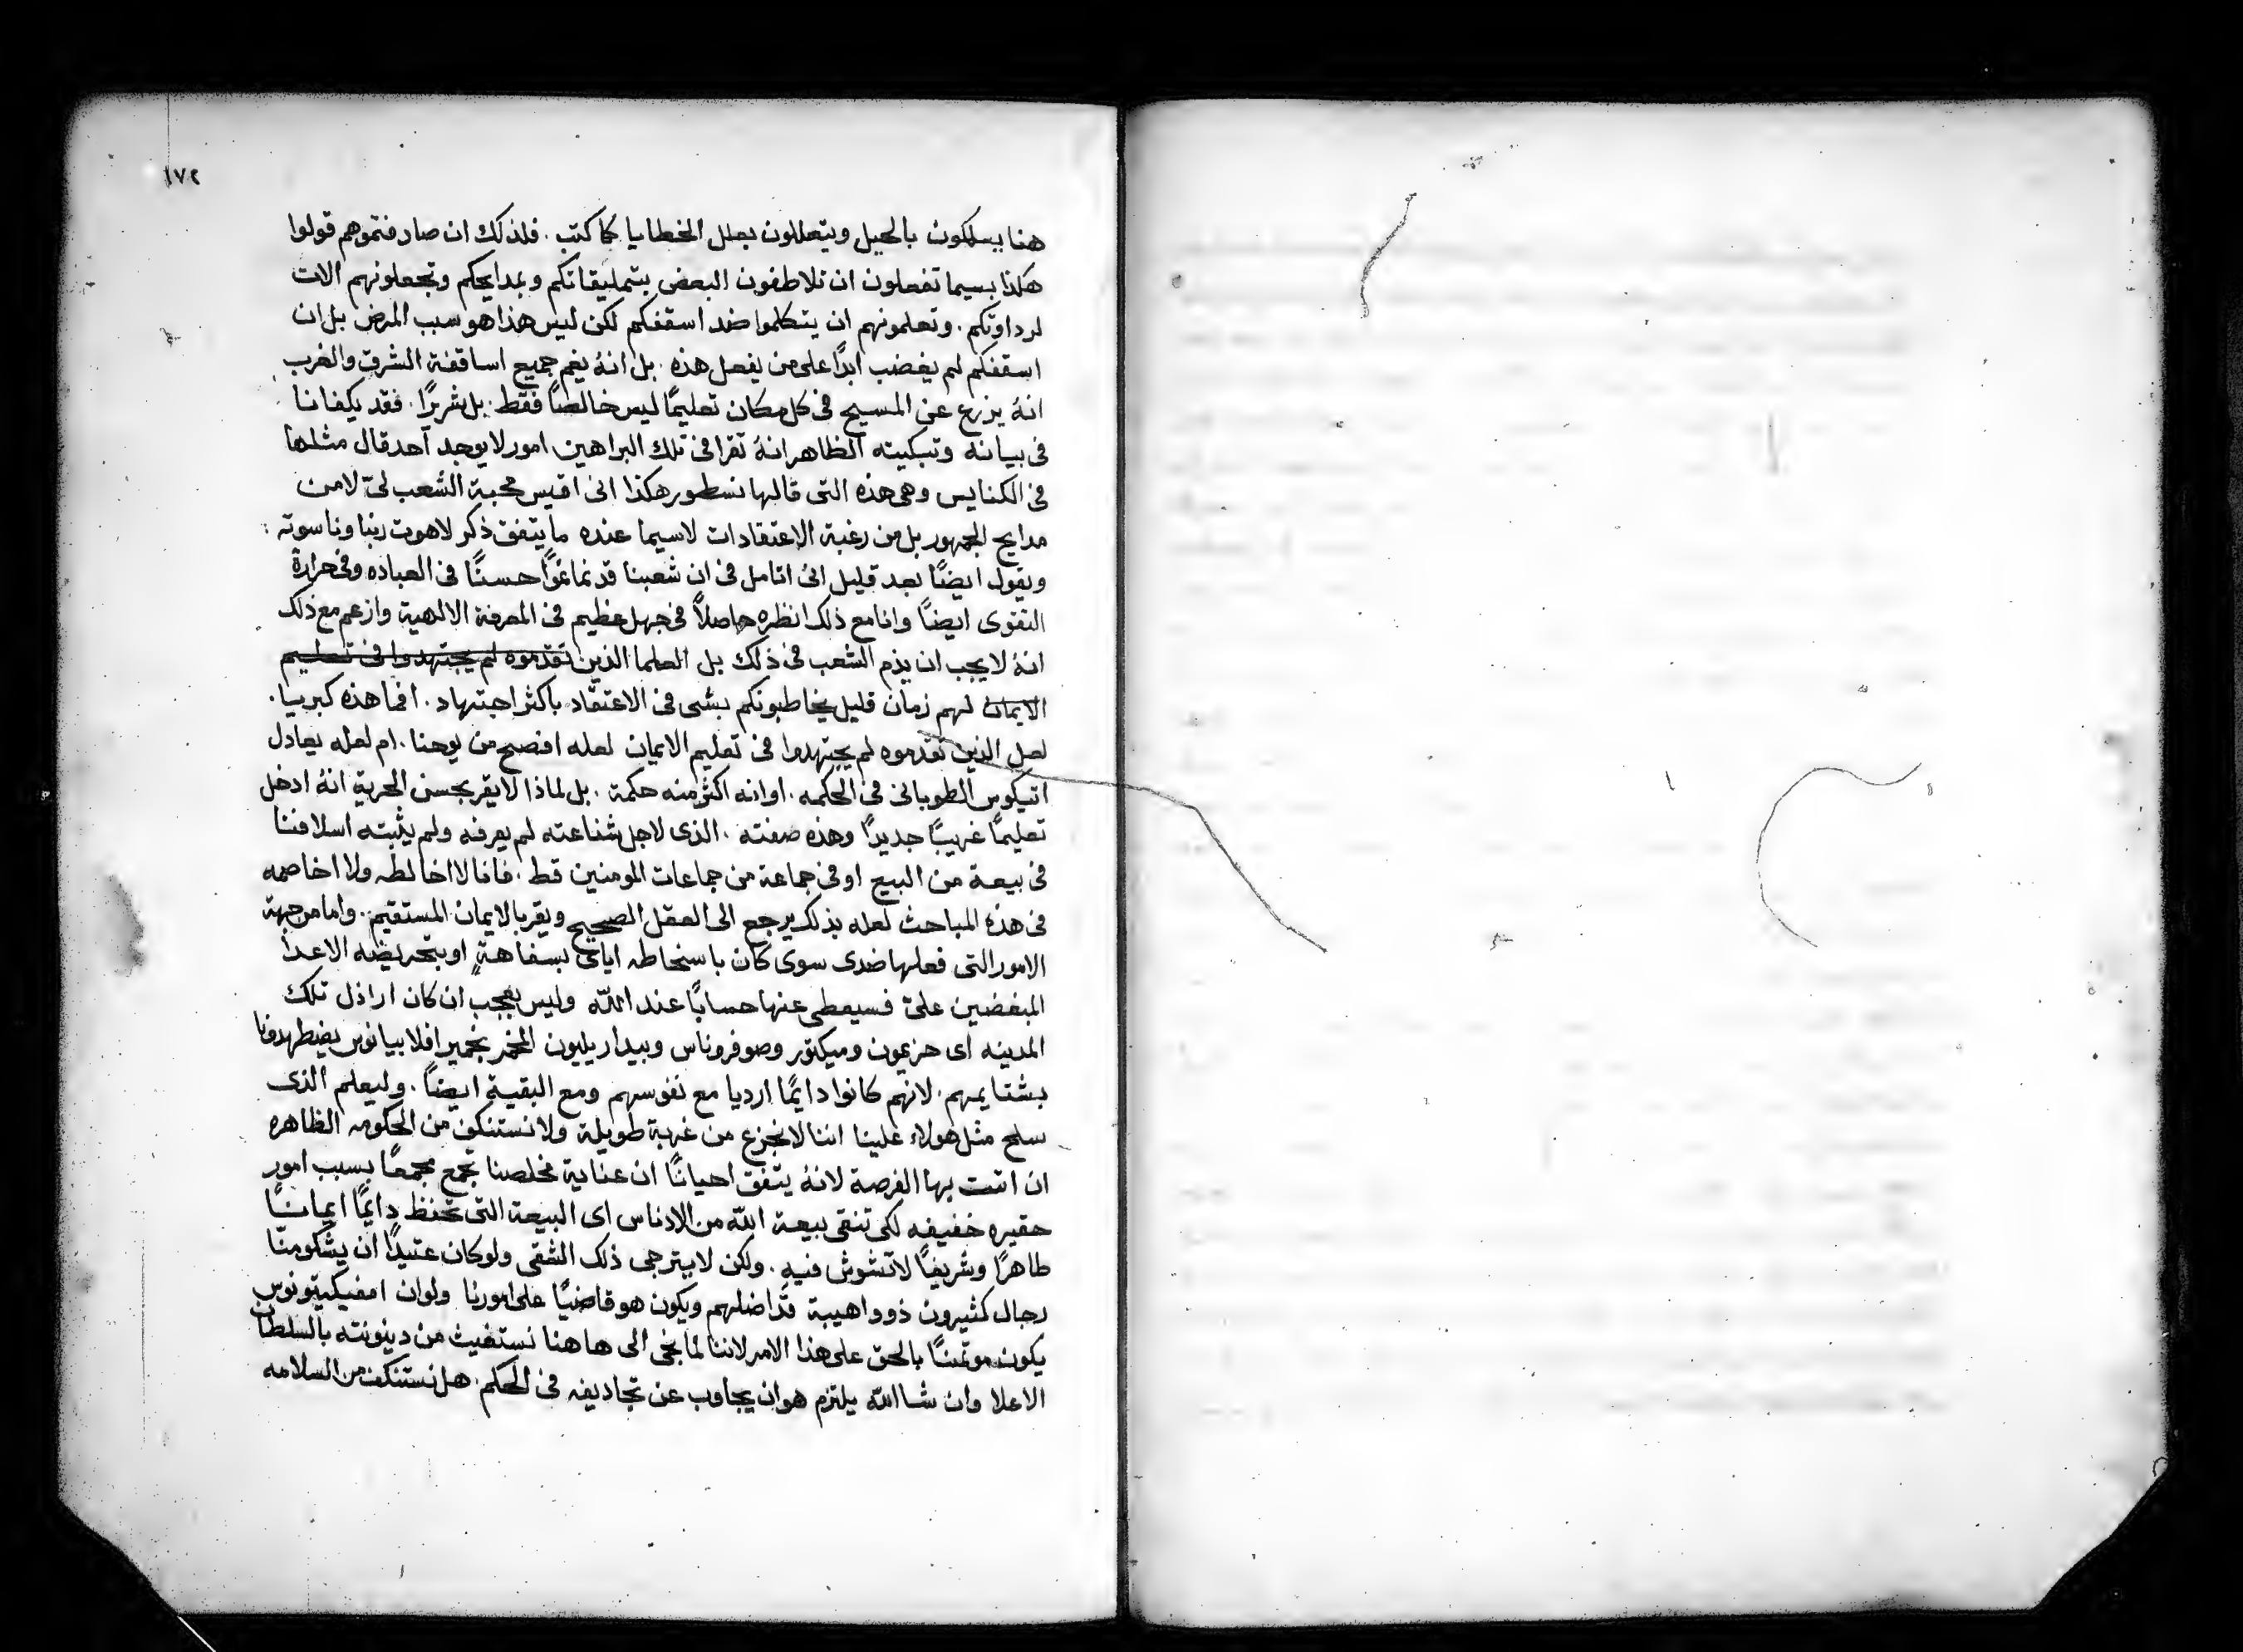 ١٧٢
هنا يسلكون بالحيل ويتعللون بعلل الخطايا كما كتب. فلذلك ان صادفتموهم قولوا
هكذا بسيما تفعلون ان تلاطفون البعض بتمليقاتكم وبمدايحكم وتجعلونهم الات
لرداوتكم. وتعلمونهم ان يتكلموا ضد اسقفكم لكن ليس هذا هو سبب المرض بل ان
اسقفكم لم يغضب ابدًا على من يفعل هذه. بل انهُ يغم جميع اساقفة الشرق والغرب
انهُ يزرع عن المسيح فى كل مكان تعليمًا ليس خالصًا فقط. بل شريرًا. فقد يكفانا
فى بيانه وتبكيته الظاهر انهُ تقرا فى تلك البراهين امور لا يوجد احد قال مثلها
فى الكنايس وهى هذه التى قالها نسطور هكذا انى اقيس محبة الشعب لىّ لا من
مدايح الجمهور بل من رغبة الاعتقادات لاسيما عنده ما يتفق ذكر لاهوت ربنا وناسوته :
ويقول ايضًا بعد قليل انى اتامل فى ان شعبنا قد نما نموًا حسنًا فى العباده وفى حرارة
التقوى ايضًا وانا مع ذلك انظره حاصلاً فى جهل عظيم فى المعرفة الالهية وازعم مع ذلك
انهُ لا يجب ان يذم الشعب فى ذلك بل العلما الذين تقدموه لم يجتهدوا فى تعليم
الايمان لهم زمان قليل يخاطبونكم بشى فى الاعتقاد باكثر اجتهاد. افما هذه كبريا.
لعل الذين تقدموه لم يجتهدوا فى تعليم الايمان لعله افصح من يوحنا. ام لعله يعادل
اتيكوس الطوبانى فى الحكمه. او انه اكثر منه حكمة. بل لماذا لا يقر بحسن الحرية انهُ ادخل
تعليمًا غريبًا جديدًا وهذه صفته. الذى لاجل شناعته لم يعرفه ولم يثبته اسلافنا
فى بيعة من البيع او فى جماعة من جماعات المومنين قط. فانا لا اخالطه ولا اخاصمه
فى هذهِ المباحث لعله بذلك يرجع الى العقل الصحيح ويقر بالايمان المستقيم. واما من جهة
الامور التى فعلها ضدى سوى كان باسخاطه اياى بسفاهةٍ او بتحريضه الاعدا
المبغضين علىّ فسيعطى عنها حسابًا عند الله وليس بعجب ان كان اراذل تلك
المدينه اى هزيمون وميكتور وصوفروناس وبيداريليون المخمر بخمير افلابيانوس يضطهدونا
بشتايمهم. لانهم كانوا دايمًا ارديا مع نفوسهم ومع البقية ايضًا. وليعلم الذى
سلح مثل هولاء علينا اننا لا نجزع من غربة طويلة ولا نستنكف من الحكومه الظاهره
ان اتت بها الفرصة لانهُ يتفق احيانًا ان عناية مخلصنا تجمع مجمعًا بسبب امور
حقيره خفيفه لكى تنقى بيعة الله من الادناس اى البيعة التى تحفظ دايمًا ايمانًا
طاهرًا وشريفًا لا تشوش فيهِ. ولكن لا يترجى ذلك الشقى ولو كان عتيدًا ان يشكو منّا
رجال كثيرون ذووا هيبة قداضلهم ويكون هو قاضيًا على امورنا ولو ان امفيكيتونوس
يكون موتمنًا بالحق على هذا الامر لاننا لما نجى الى هاهنا نستغيث من دينونته بالسلطان
الاعلا وان شا الله يلتزم هو ان يجاوب عن تجاديفه فى الحكم. هل نستنكف من السلامه